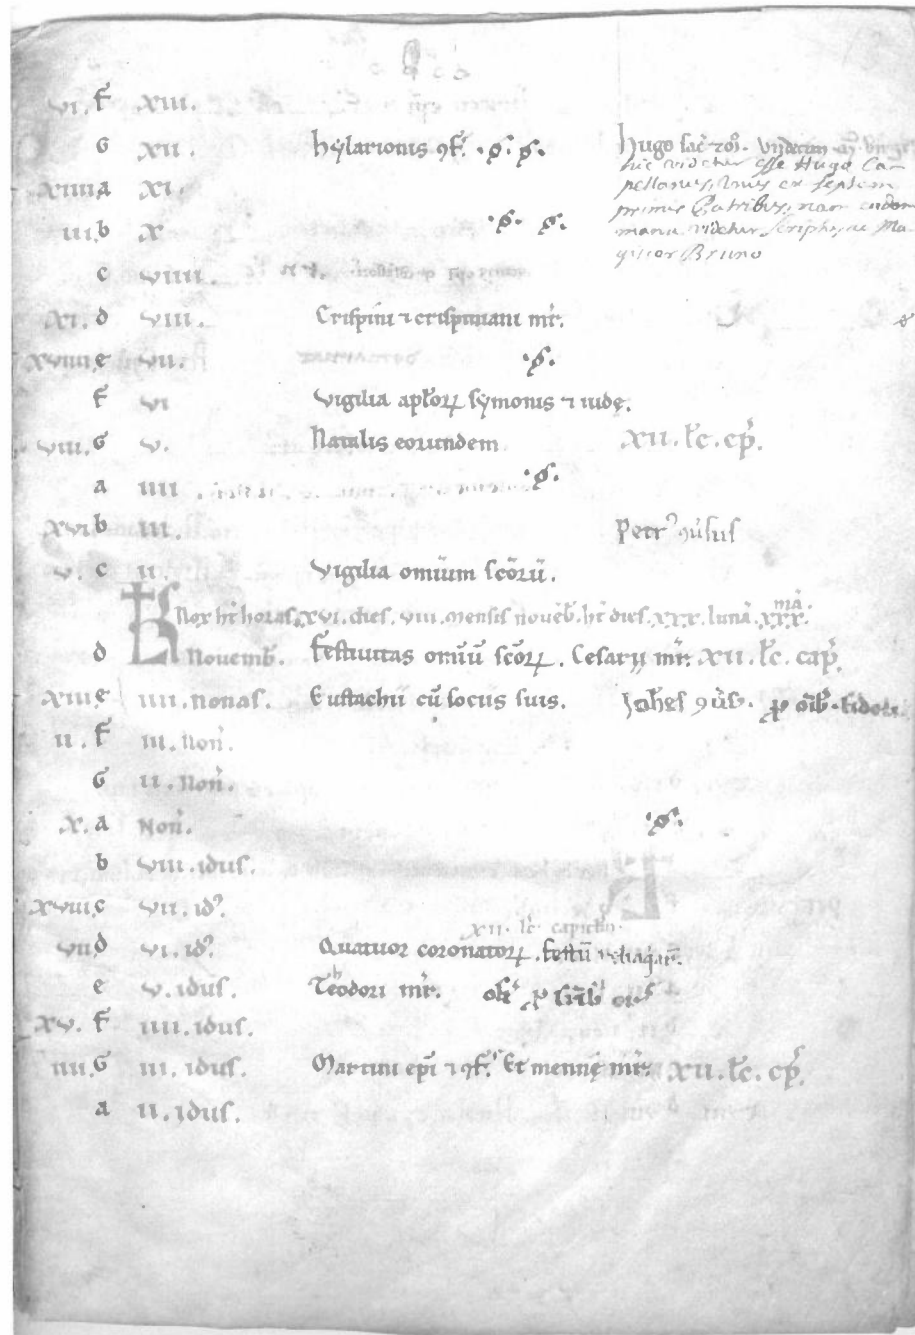 vi. f xiii.
G xii. hylarionis ꝯf̄. Hugo sac̄
xiiii. a xi. hic videtur esse Hugo Ca-
pellanus, unus ex septem
iii. b x primis Patribus, nam eadem
manu videtur scriptus ac Ma-
gister Bruno
c viiii.
xi. d viii. Crispini ⁊ crispiniani mr̄.
xviiii. e vii.
f vi vigilia apl̄oꝝ symonis ⁊ iudę.
viii. G v. Natalis eorundem xii. lc̄. cp̄.
a iiii.
xvi b iii. Petr᾿ ꝯu̅sus
v. c ii. vigilia omiūm sc̄orū.
KL Nox hr̄ horas. xvi. dies. viii. mensis noueb̄. hr̄ dies. xxx. luna. xxx. ma
d Nouemb̄. festiuitas omiū sc̄oꝝ. Cesarij mr̄. xii. lc̄. cap̄.
xiii. e iiii. nonas. Eustachii cū sociis suis. Joh̄es ꝯu̅s. ꝓ oīb᾿ fidel.
ii. f iii. Non̄.
G ii. Non̄.
x. a Non̄.
b viii. idus.
xviii. c vii. id᾿
xii. lc̄ capitlm.
vii. d vi. id᾿ Quatuor coronatoꝝ. festū reliquiar̄.
e v. idus. Teodori mr̄.
xv. f iiii. idus.
iiii. G iii. idus. Martini epī ⁊ ꝯf̄. Et mennę mr̄. xii. lc̄. cp̄.
a ii. idus.